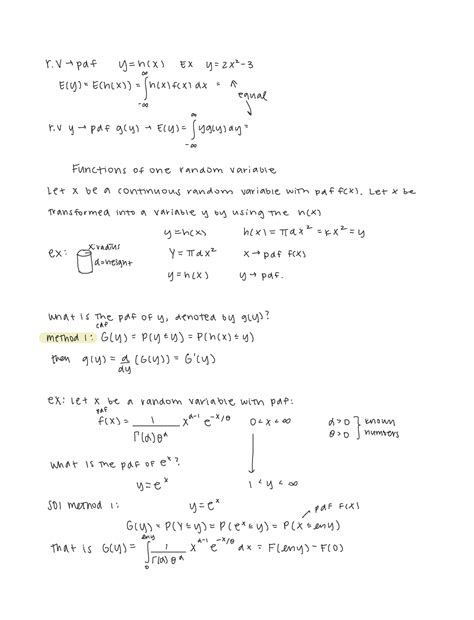 r.v → pdf y = h(x) EX y = 2x² - 3
E(y) = E(h(x)) = ∫_{-∞}^{∞} h(x) f(x) dx =
equal
r.v y → pdf g(y) → E(y) = ∫_{-∞}^{∞} y g(y) dy =
Functions of one random variable
Let x be a continuous random variable with pdf f(x). Let x be
transformed into a variable y by using the h(x)
y = h(x) h(x) = πdx² = kx² = y
ex: x: radius Y = πdx² x → pdf f(x)
d = height
y = h(x) y → pdf.
what is the pdf of y, denoted by g(y)?
cdf
method 1: G(y) = P(Y ≤ y) = P(h(x) ≤ y)
then g(y) = d/dy (G(y)) = G'(y)
ex: Let x be a random variable with pdf:
pdf
f(x) = 1/(Γ(α)θ^α) x^{α-1} e^{-x/θ} 0 < x < ∞ α > 0 θ > 0 } known numbers
what is the pdf of e^x?
y = e^x 1 < y < ∞
Sol method 1: y = e^x
pdf f(x)
G(y) = P(Y ≤ y) = P(e^x ≤ y) = P(X ≤ ln y)
That is G(y) = ∫_0^{ln y} 1/(Γ(α)θ^α) x^{α-1} e^{-x/θ} dx = F(ln y) - F(0)